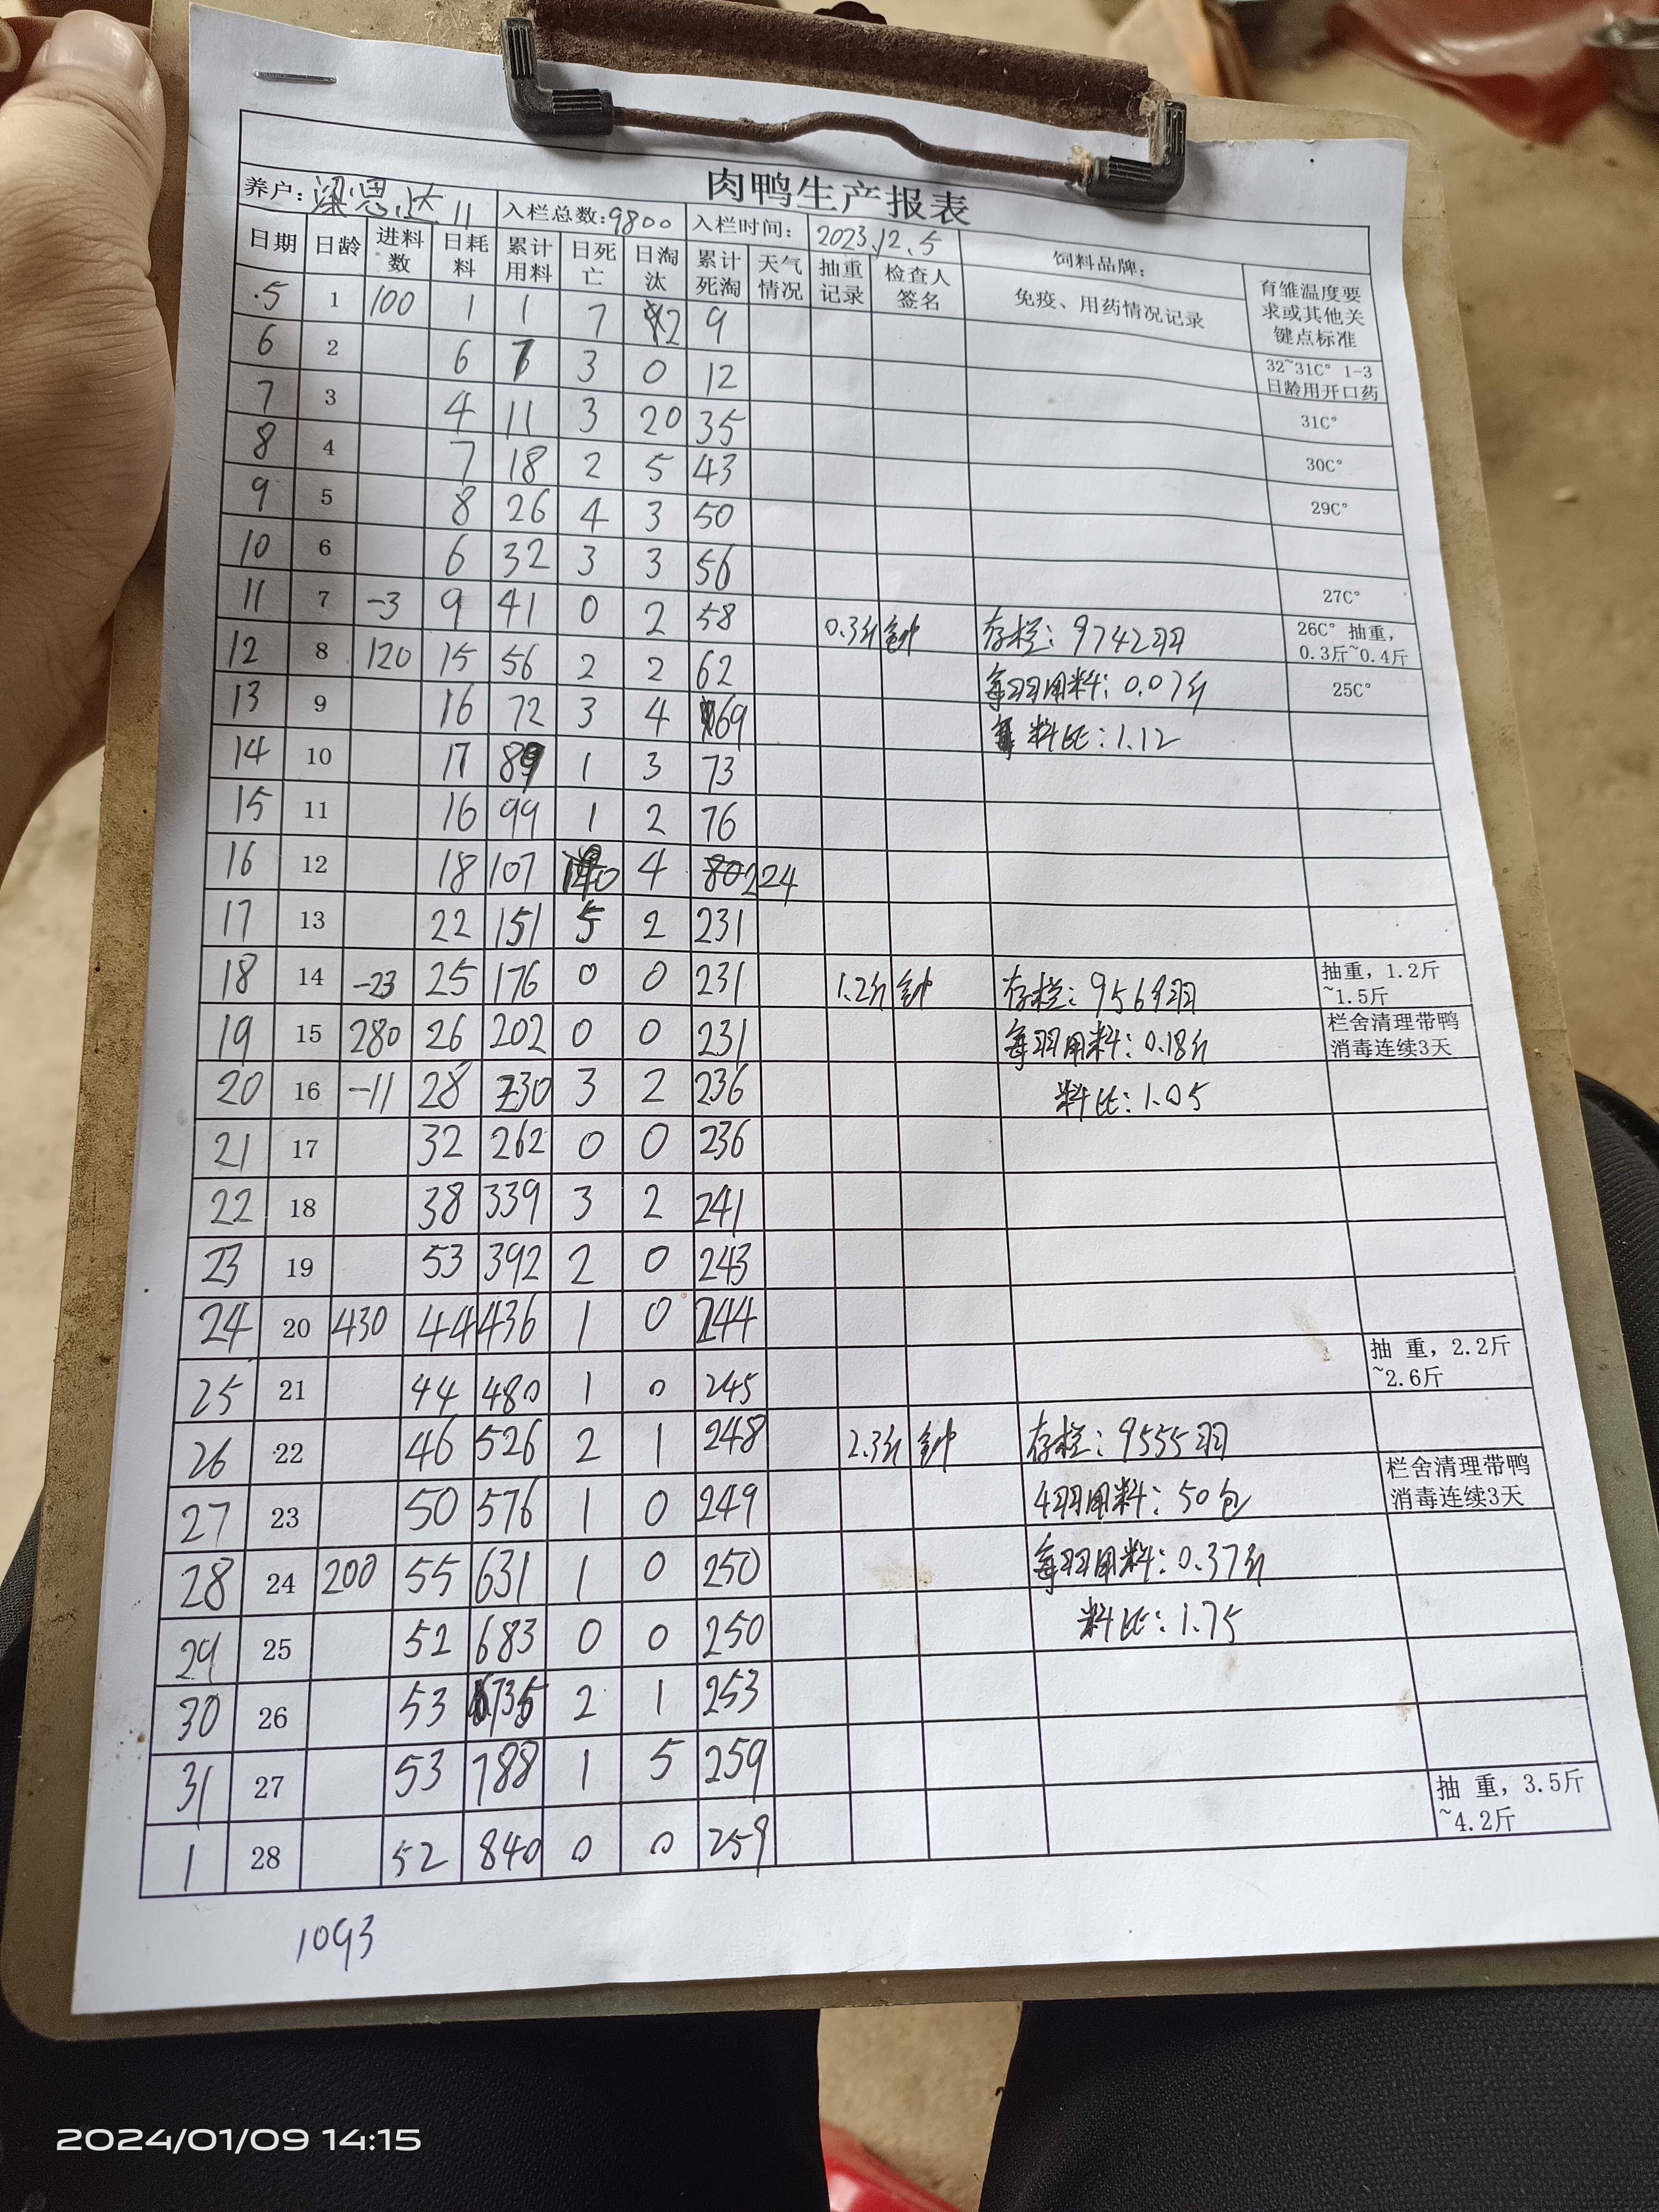 肉鸭生产报表
养户: 梁思达 11 入栏总数:9800 入栏时间: 2023.12.5 饲料品牌:
日期 日龄 进料数 日耗料 累计用料 日死亡 日淘汰 累计死淘 天气情况 抽重记录 检查人签名 免疫、用药情况记录 育雏温度要求或其他关键点标准
5 1 100 1 1 7 2 9
6 2 6 7 3 0 12 32~31C° 1-3日龄用开口药
7 3 4 11 3 20 35 31C°
8 4 7 18 2 5 43 30C°
9 5 8 26 4 3 50 29C°
10 6 6 32 3 3 56 27C°
11 7 -3 9 41 0 2 58 0.3斤 钟 存栏: 9742羽 26C° 抽重, 0.3斤~0.4斤
12 8 120 15 56 2 2 62 每羽用料: 0.07斤 25C°
13 9 16 72 3 4 69 料比: 1.12
14 10 17 89 1 3 73
15 11 16 99 1 2 76
16 12 18 107 140 4 224
17 13 22 151 5 2 231
18 14 -23 25 176 0 0 231 1.2斤 钟 存栏: 9569羽 抽重, 1.2斤~1.5斤
19 15 280 26 202 0 0 231 每羽用料: 0.18斤 栏舍清理带鸭消毒连续3天
20 16 -11 28 230 3 2 236 料比: 1.05
21 17 32 262 0 0 236
22 18 38 339 3 2 241
23 19 53 392 2 0 243
24 20 430 44 436 1 0 244
25 21 44 480 1 0 245 抽 重, 2.2斤~2.6斤
26 22 46 526 2 1 248 2.3斤 钟 存栏: 9555羽
27 23 50 576 1 0 249 4羽用料: 50包 栏舍清理带鸭消毒连续3天
28 24 200 55 631 1 0 250 每羽用料: 0.37斤
29 25 52 683 0 0 250 料比: 1.75
30 26 53 735 2 1 253
31 27 53 788 1 5 259
1 28 52 840 0 0 259 抽 重, 3.5斤~4.2斤
1093
2024/01/09 14:15